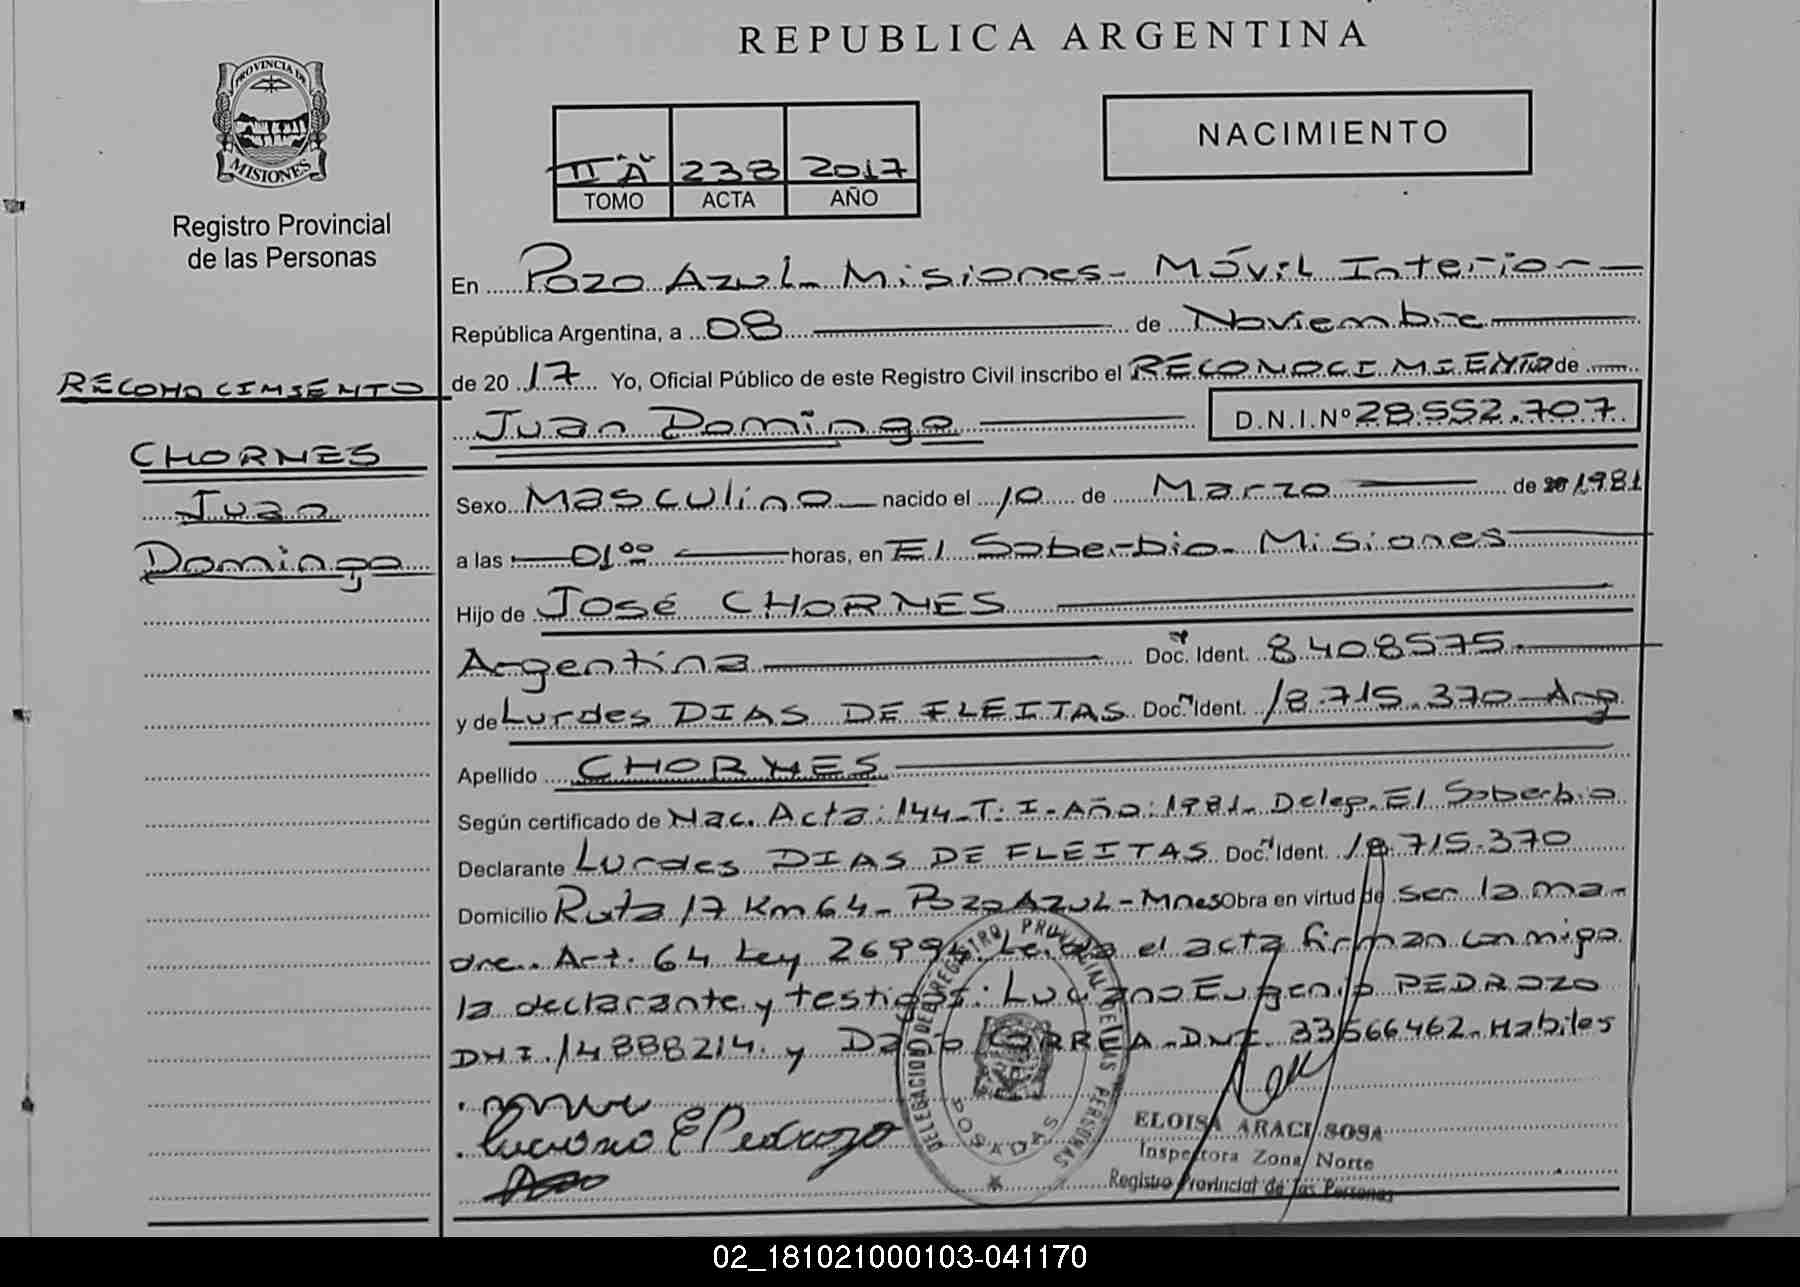 REPUBLICA ARGENTINA
PROVINCIA DE
MISIONES
Registro Provincial
de las Personas
NACIMIENTO
II "A" 238 2017
TOMO ACTA AÑO
En Pozo Azul - Misiones - Móvil Interior
República Argentina, a 08 de Noviembre
RECONOCIMIENTO
de 20 17 Yo, Oficial Público de este Registro Civil inscribo el RECONOCIMIENTO de
Juan Domingo D.N.I.Nº 28.552.707
CHORNES
Juan
Domingo
Sexo Masculino nacido el 10 de Marzo de 20 1981
a las 01 00 horas, en El Soberbio - Misiones
Hijo de José CHORNES
Argentina Doc. Ident. 8408575
y de Lurdes DIAS DE FLEITAS Doc. Ident. 18.715.370 - Arg
Apellido CHORNES
Según certificado de Nac. Acta: 144 - T: I - Año: 1981 - Deleg. El Soberbio
Declarante Lurdes DIAS DE FLEITAS Doc. Ident. 18.715.370
Domicilio Ruta 17 Km 64 - Pozo Azul - Mnes Obra en virtud de ser la ma-
dre. Art. 64 Ley 26994. Leída el acta firman conmigo
la declarante y testigos: Luciano Eugenio PEDROZO
DNI. 14888214. y Darío CORREA - DNI. 33566462 - Habiles
Luciano E Pedrozo
DELEGACION DEL REGISTRO PROVINCIAL DE LAS PERSONAS
POSADAS
ELOISA ARACI SOSA
Inspectora Zona Norte
Registro Provincial de las Personas
02_181021000103-041170